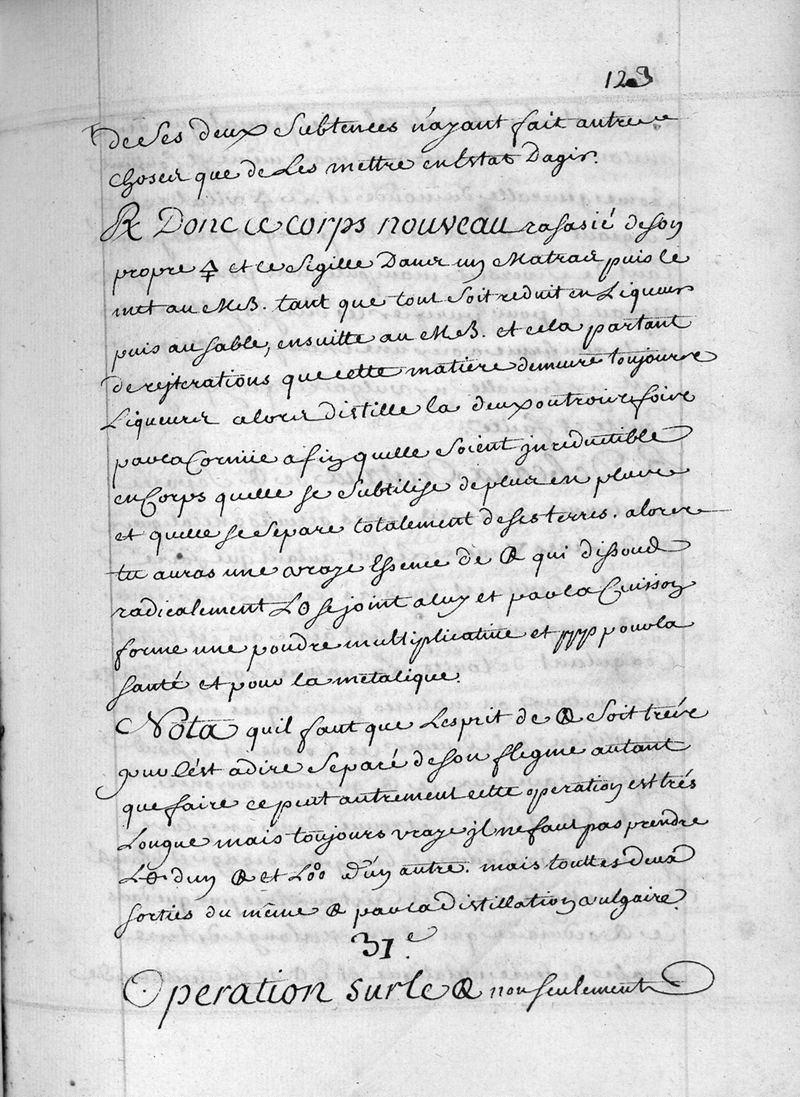 123
de ses deux subtences n'ayant fait autre
choses que de Les mettre en Estat Dagir.
℞ Donc ce corps nouveau rasasié de son
propre 🜍 et ce sigille Dans un Matras puis le
met au MB. tant que tout soit reduit en Liqueur
puis au sable, ensuitte au MB. et cela partant
de rejterations que cette matière demeure toujours
Liqueurs alors distille la deux ou trois fois
par la Cornüe afin quelle soient jrreductible
en Corps quelle se subtilise de plus en plus
et quelle se separe totalement de ses terres. alors
tu auras une vraye Essence de qui dissoud
radicalement L☉ se joint a luy et par la Cuisson
forme une poudre multiplicative et ppp pour la
santé et pour la metalique.
Nota quil faut que Lesprit de soit trés
pur c'ést a dire separé de son flegme autant
que faire ce peut autrement cette operation est trés
Longue mais toujours vraye jl ne faut pas prendre
d'un et d'un autre. mais touttes deux
sorties du même par la distillation vulgaire.
37e
Operation sur le non seulement